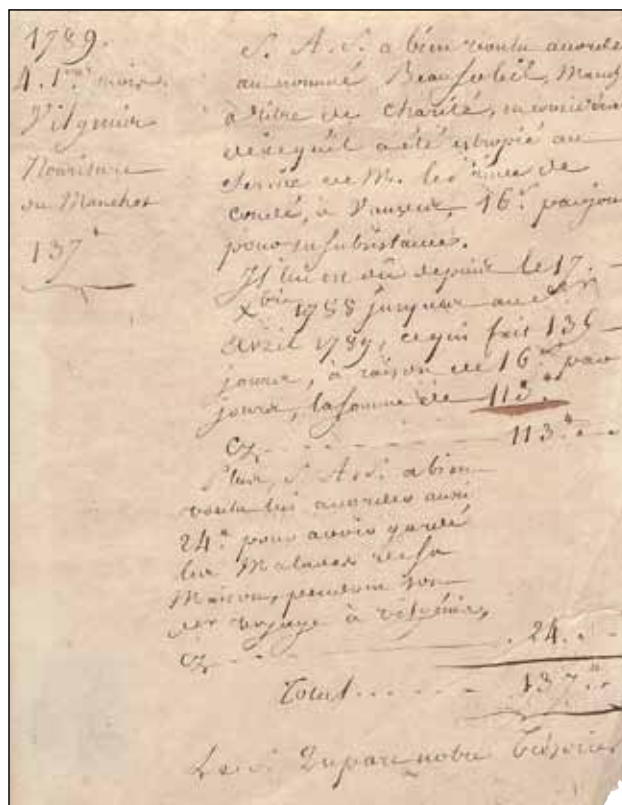 1789.
4. 1ers mois.
Vilgenie
Nouriture
du Manchot
137#
S. A. S. a bien voulu accorde
au nommé Beausoleil, Manch
à titre de Charité, en considéra
de ce qu'il a été estropié au
Service de M. le Prince de
Condé, à 16s. par jou
pour sa subsistance.
Il lui est dû depuis le 17.
Xbre 1788 jusques au
Avril 1789, ce qui fait 135
jours, à raison de 16s par
jours, la somme de 113#
Cy 113#
Plus, S. A. S. a bien
voulu lui accorder aussi
24# pour avoir gardé
les Malades de sa
Maison, pendant son
der voyage à vilgénie,
Cy 24.
Total 137#
Le Sr. Duparc notre Trésorier